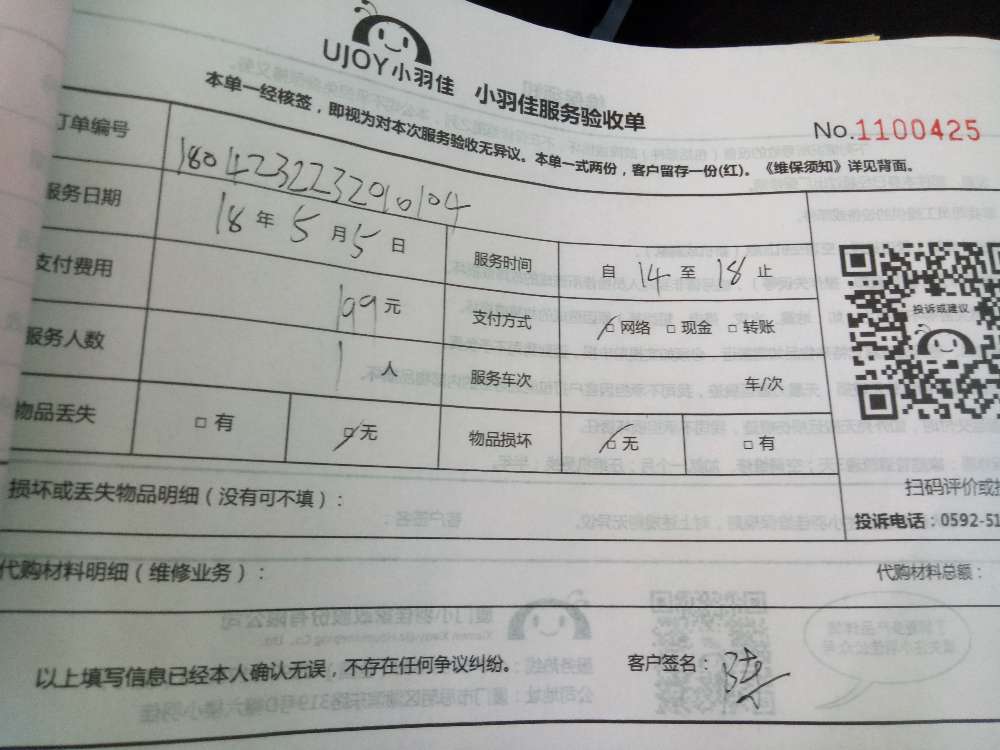 UJOY小羽佳 小羽佳服务验收单
No.1100425
本单一经核签，即视为对本次服务验收无异议。本单一式两份，客户留存一份(红)。《维保须知》详见背面。
订单编号 180423223296104
服务日期 18年5月5日 服务时间 自14至18止
支付费用 199元 支付方式 □网络 □现金 □转账
投诉或建议
服务人数 1人 服务车次 车/次
物品丢失 □有 □无 物品损坏 □无 □有
扫码评价或
损坏或丢失物品明细（没有可不填）：
投诉电话：0592-51
代购材料明细（维修业务）：
代购材料总额：
以上填写信息已经本人确认无误，不存在任何争议纠纷。 客户签名：